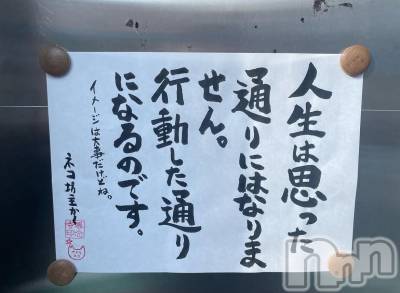 人生は思った
通りにはなりま
せん。
行動した通り
になるのです。
イメージは大事だけどね。
ネコ坊主から